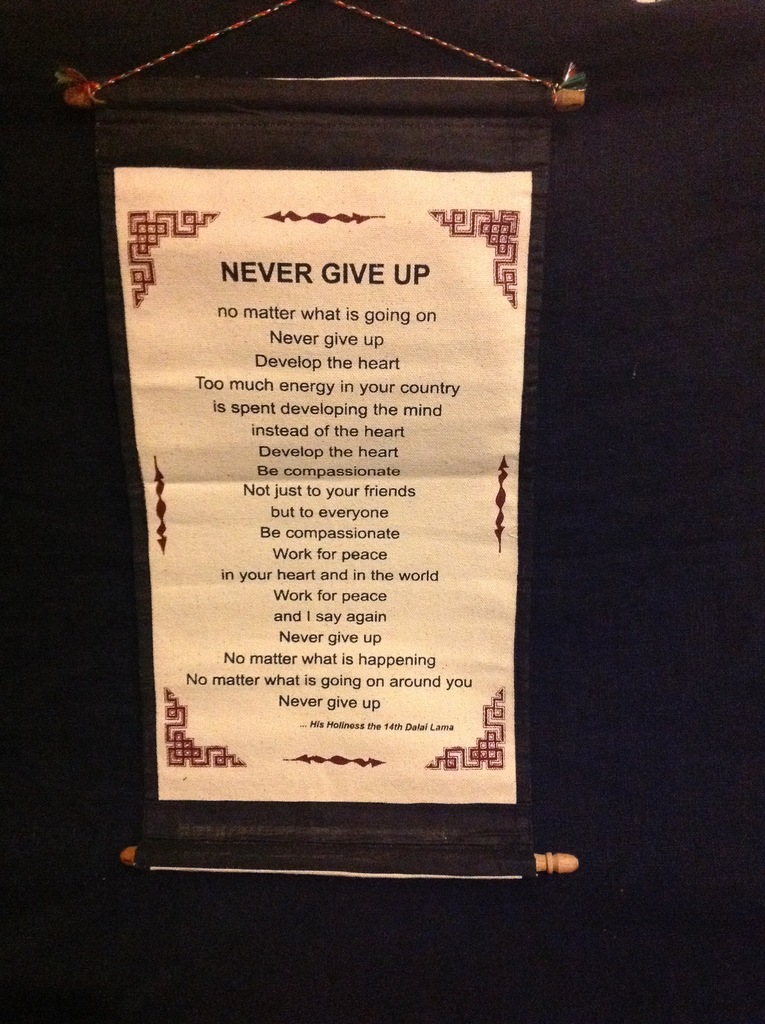 NEVER GIVE UP
no matter what is going on
Never give up
Develop the heart
Too much energy in your country
is spent developing the mind
instead of the heart
Develop the heart
Be compassionate
Not just to your friends
but to everyone
Be compassionate
Work for peace
in your heart and in the world
Work for peace
and I say again
Never give up
No matter what is happening
No matter what is going on around you
Never give up
... His Holiness the 14th Dalai Lama